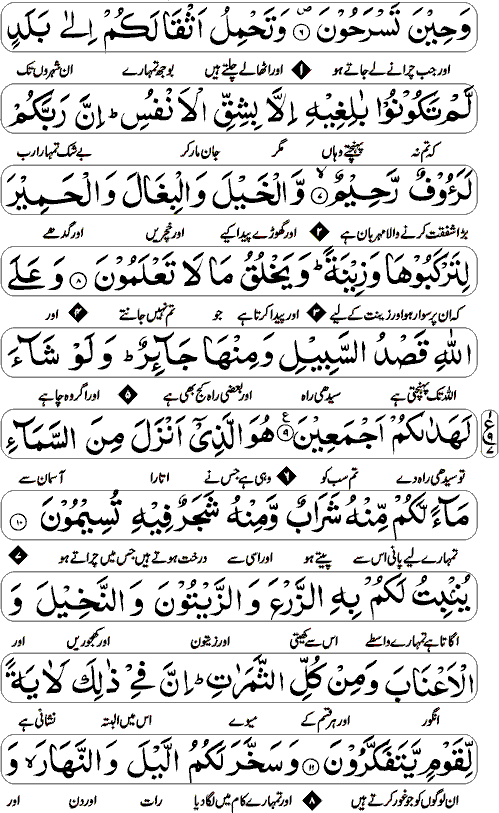 وَحِیْنَ تَسْرَحُوْنَ ۶ وَتَحْمِلُ اَثْقَالَكُمْ اِلٰى بَلَدٍ
اور جب چرانے لے جاتے ہو ۱ اور اٹھا لے چلتے ہیں بوجھ تمہارے ان شہروں تک
لَّمْ تَكُوْنُوْا بٰلِغِیْهِ اِلَّا بِشِقِّ الْاَنْفُسِ ؕ اِنَّ رَبَّكُمْ
کہ تم نہ پہنچتے وہاں مگر جان مار کر بے شک تمہارا رب
لَرَءُوْفٌ رَّحِیْمٌ ۷ وَّالْخَیْلَ وَالْبِغَالَ وَالْحَمِیْرَ
بڑا شفقت کرنے والا مہربان ہے ۲ اور گھوڑے پیدا کیے اور خچریں اور گدھے
لِتَرْكَبُوْهَا وَزِیْنَةً ؕ وَیَخْلُقُ مَا لَا تَعْلَمُوْنَ ۸ وَعَلَى
کہ ان پر سوار ہو اور زینت کے لیے ۳ اور پیدا کرتا ہے جو تم نہیں جانتے ۴ اور
اللّٰهِ قَصْدُ السَّبِیْلِ وَمِنْهَا جَآئِرٌ ؕ وَلَوْ شَآءَ
اللہ تک پہنچتی ہے سیدھی راہ اور بعضی راہ کج بھی ہے ۵ اور اگر وہ چاہے
لَهَدٰىكُمْ اَجْمَعِیْنَ ۹ هُوَ الَّذِیْۤ اَنْزَلَ مِنَ السَّمَآءِ
تو سیدھی راہ دے تم سب کو ۶ وہی ہے جس نے اتارا آسمان سے
مَآءً لَّكُمْ مِّنْهُ شَرَابٌ وَّمِنْهُ شَجَرٌ فِیْهِ تُسِیْمُوْنَ ۱۰
تمہارے لیے پانی اس سے پیتے ہو اور اسی سے درخت ہوتے ہیں جس میں چراتے ہو ۷
یُنْۢبِتُ لَكُمْ بِهِ الزَّرْعَ وَالزَّیْتُوْنَ وَالنَّخِیْلَ وَ
اگاتا ہے تمہارے واسطے اس سے کھیتی اور زیتون اور کھجوریں اور
الْاَعْنَابَ وَمِنْ كُلِّ الثَّمَرٰتِ ؕ اِنَّ فِیْ ذٰلِكَ لَاٰیَةً
انگور اور ہر قسم کے میوے اس میں البتہ نشانی ہے
لِّقَوْمٍ یَّتَفَكَّرُوْنَ ۱۱ وَسَخَّرَ لَكُمُ الَّیْلَ وَالنَّهَارَ ۙ وَ
ان لوگوں کو جو غور کرتے ہیں ۸ اور تمہارے کام میں لگا دیا رات اور دن اور